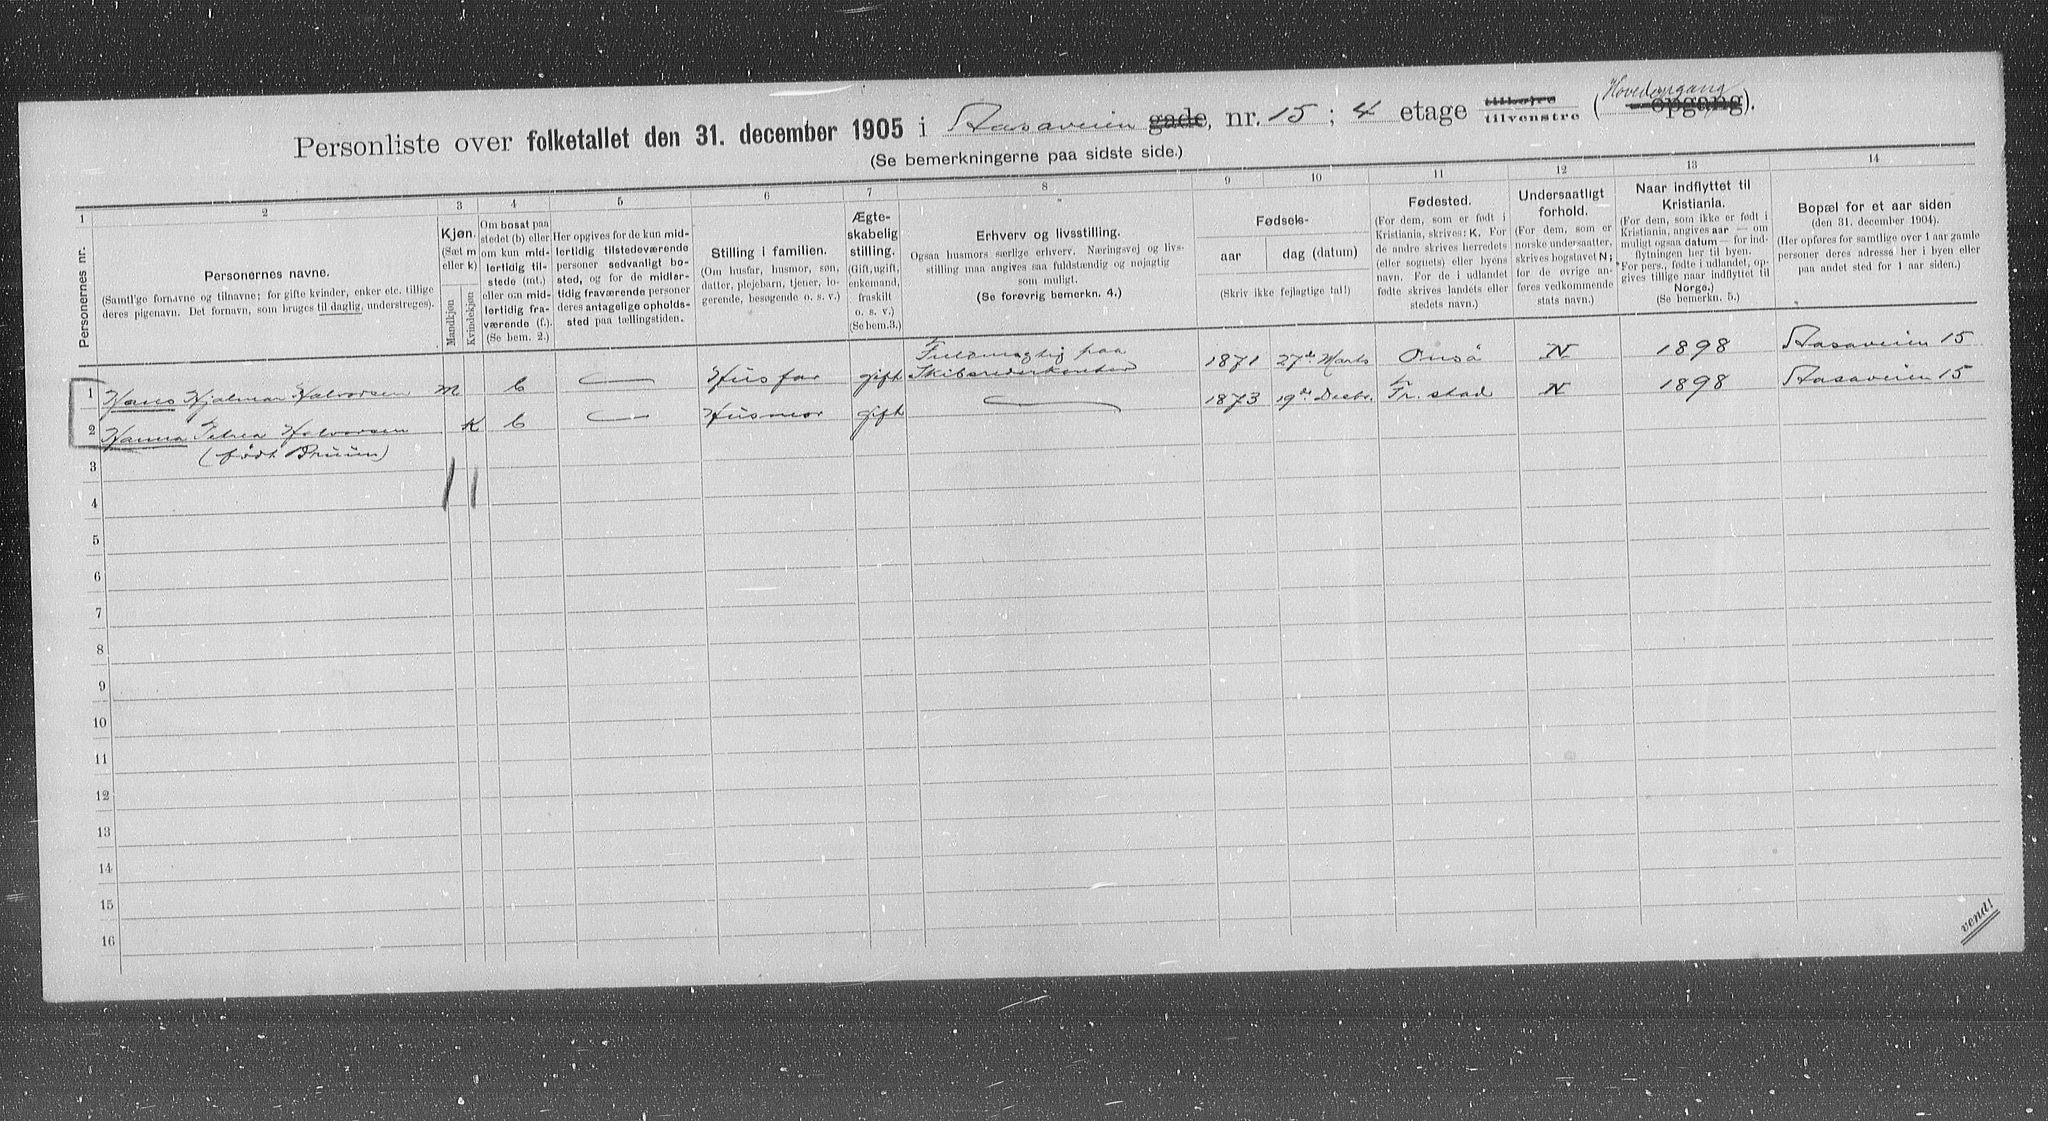 Personliste over folketallet den 31. december 1905 i Aasaveien gade, nr. 15 ; 4 etage tilhøjre tilvenstre (Hovedopgang - opgang).
(Se bemerkningerne paa sidste side.)
1 2 3 4 5 6 7 8 9 10 11 12 13 14
Personernes nr.
Personernes navne.
(Samtlige fornavne og tilnavne; for gifte kvinder, enker etc. tillige
deres pigenavn. Det fornavn, som bruges til daglig, understreges).
Kjøn.
(Sæt m
eller k)
Mandkjøn
Kvindekjøn
Om bosat paa
stedet (b) eller
om kun mid-
lertidig til-
stede (mt.)
eller om mid-
lertidig fra-
værende (f.).
(Se bem. 2.)
Her opgives for de kun mid-
lertidig tilstedeværende
personer sedvanligt bo-
sted, og for de midler-
tidig fraværende personer
deres antagelige opholds-
sted paa tællingstiden.
Stilling i familien.
(Om husfar, husmor, søn,
datter, plejebarn, tjener, lo-
gerende, besøgende o. s. v.)
Ægte-
skabelig
stilling.
(Gift, ugift,
enkemand,
fraskilt
o. s. v.)
(Se bem. 3.)
Erhverv og livsstilling.
Ogsaa husmors særlige erhverv. Næringsvej og livs-
stilling maa angives saa fuldstændig og nøjagtig
som muligt.
(Se forøvrig bemerkn. 4.)
Fødsels-
aar
dag (datum)
(Skriv ikke fejlagtige tal!)
Fødested.
(For dem, som er født i
Kristiania, skrives: K. For
de andre skrives herredets
(eller sognets) eller byens
navn. For de i udlandet
fødte skrives landets eller
stedets navn.)
Undersaatligt
forhold.
(For dem, som er
norske undersaatter,
skrives bogstavet N;
for de øvrige an-
føres vedkommende
stats navn.)
Naar indflyttet til
Kristiania.
(For dem, som ikke er født i
Kristiania, angives aar — om
muligt ogsaa datum — for ind-
flytningen her til byen.
For pers., fødte i udlandet, op-
gives tillige naar indflyttet til
Norge.)
(Se bemerkn. 5.)
Bopæl for et aar siden
(den 31. december 1904).
(Her opføres for samtlige over 1 aar gamle
personer deres adresse her i byen eller
paa andet sted for 1 aar siden.)
1 Hans Hjalmar Halvorsen m b Husfar gift Fuldmægtig paa Skibsrederkontor 1871 27de Marts Onsø N 1898 Aasaveien 15
2 Hanna Petrea Halvorsen K b Husmor gift 1873 19de Decbr. Fr.stad N 1898 Aasaveien 15
(født Bruun)
3
4
5
6
7
8
9
10
11
12
13
14
15
16
vend!